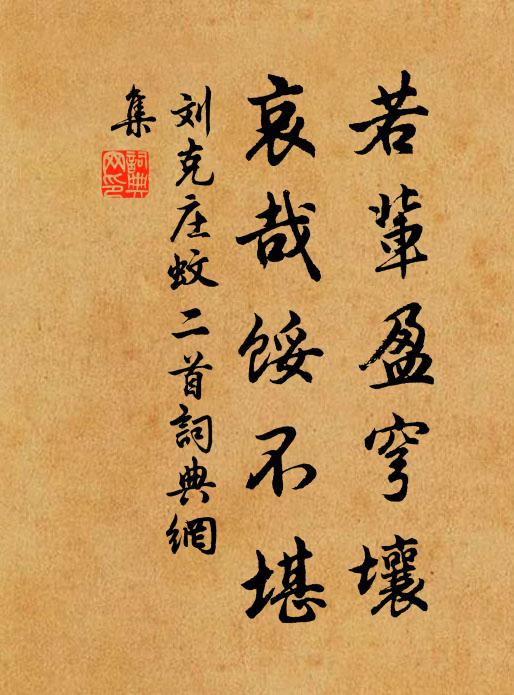 若輩盈穹壤
哀哉餒不堪
刘克庄蚊二首詞典網
集
詞典
网印